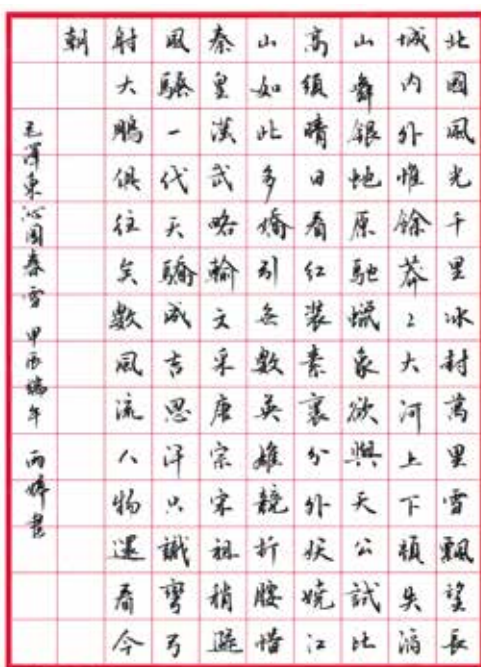 北國風光千里冰封萬里雪飄望長
城內外惟餘莽〻大河上下頓失滔
山舞銀蛇原馳蠟象欲與天公試比
高須晴日看紅裝素裹分外妖嬈江
山如此多嬌引無數英雄競折腰惜
秦皇漢武略輸文采唐宗宋祖稍遜
風騷一代天驕成吉思汗只識彎弓
射大鵰俱往矣數風流人物還看今
朝
毛澤東沁園春雪 甲辰端午 雨婷書